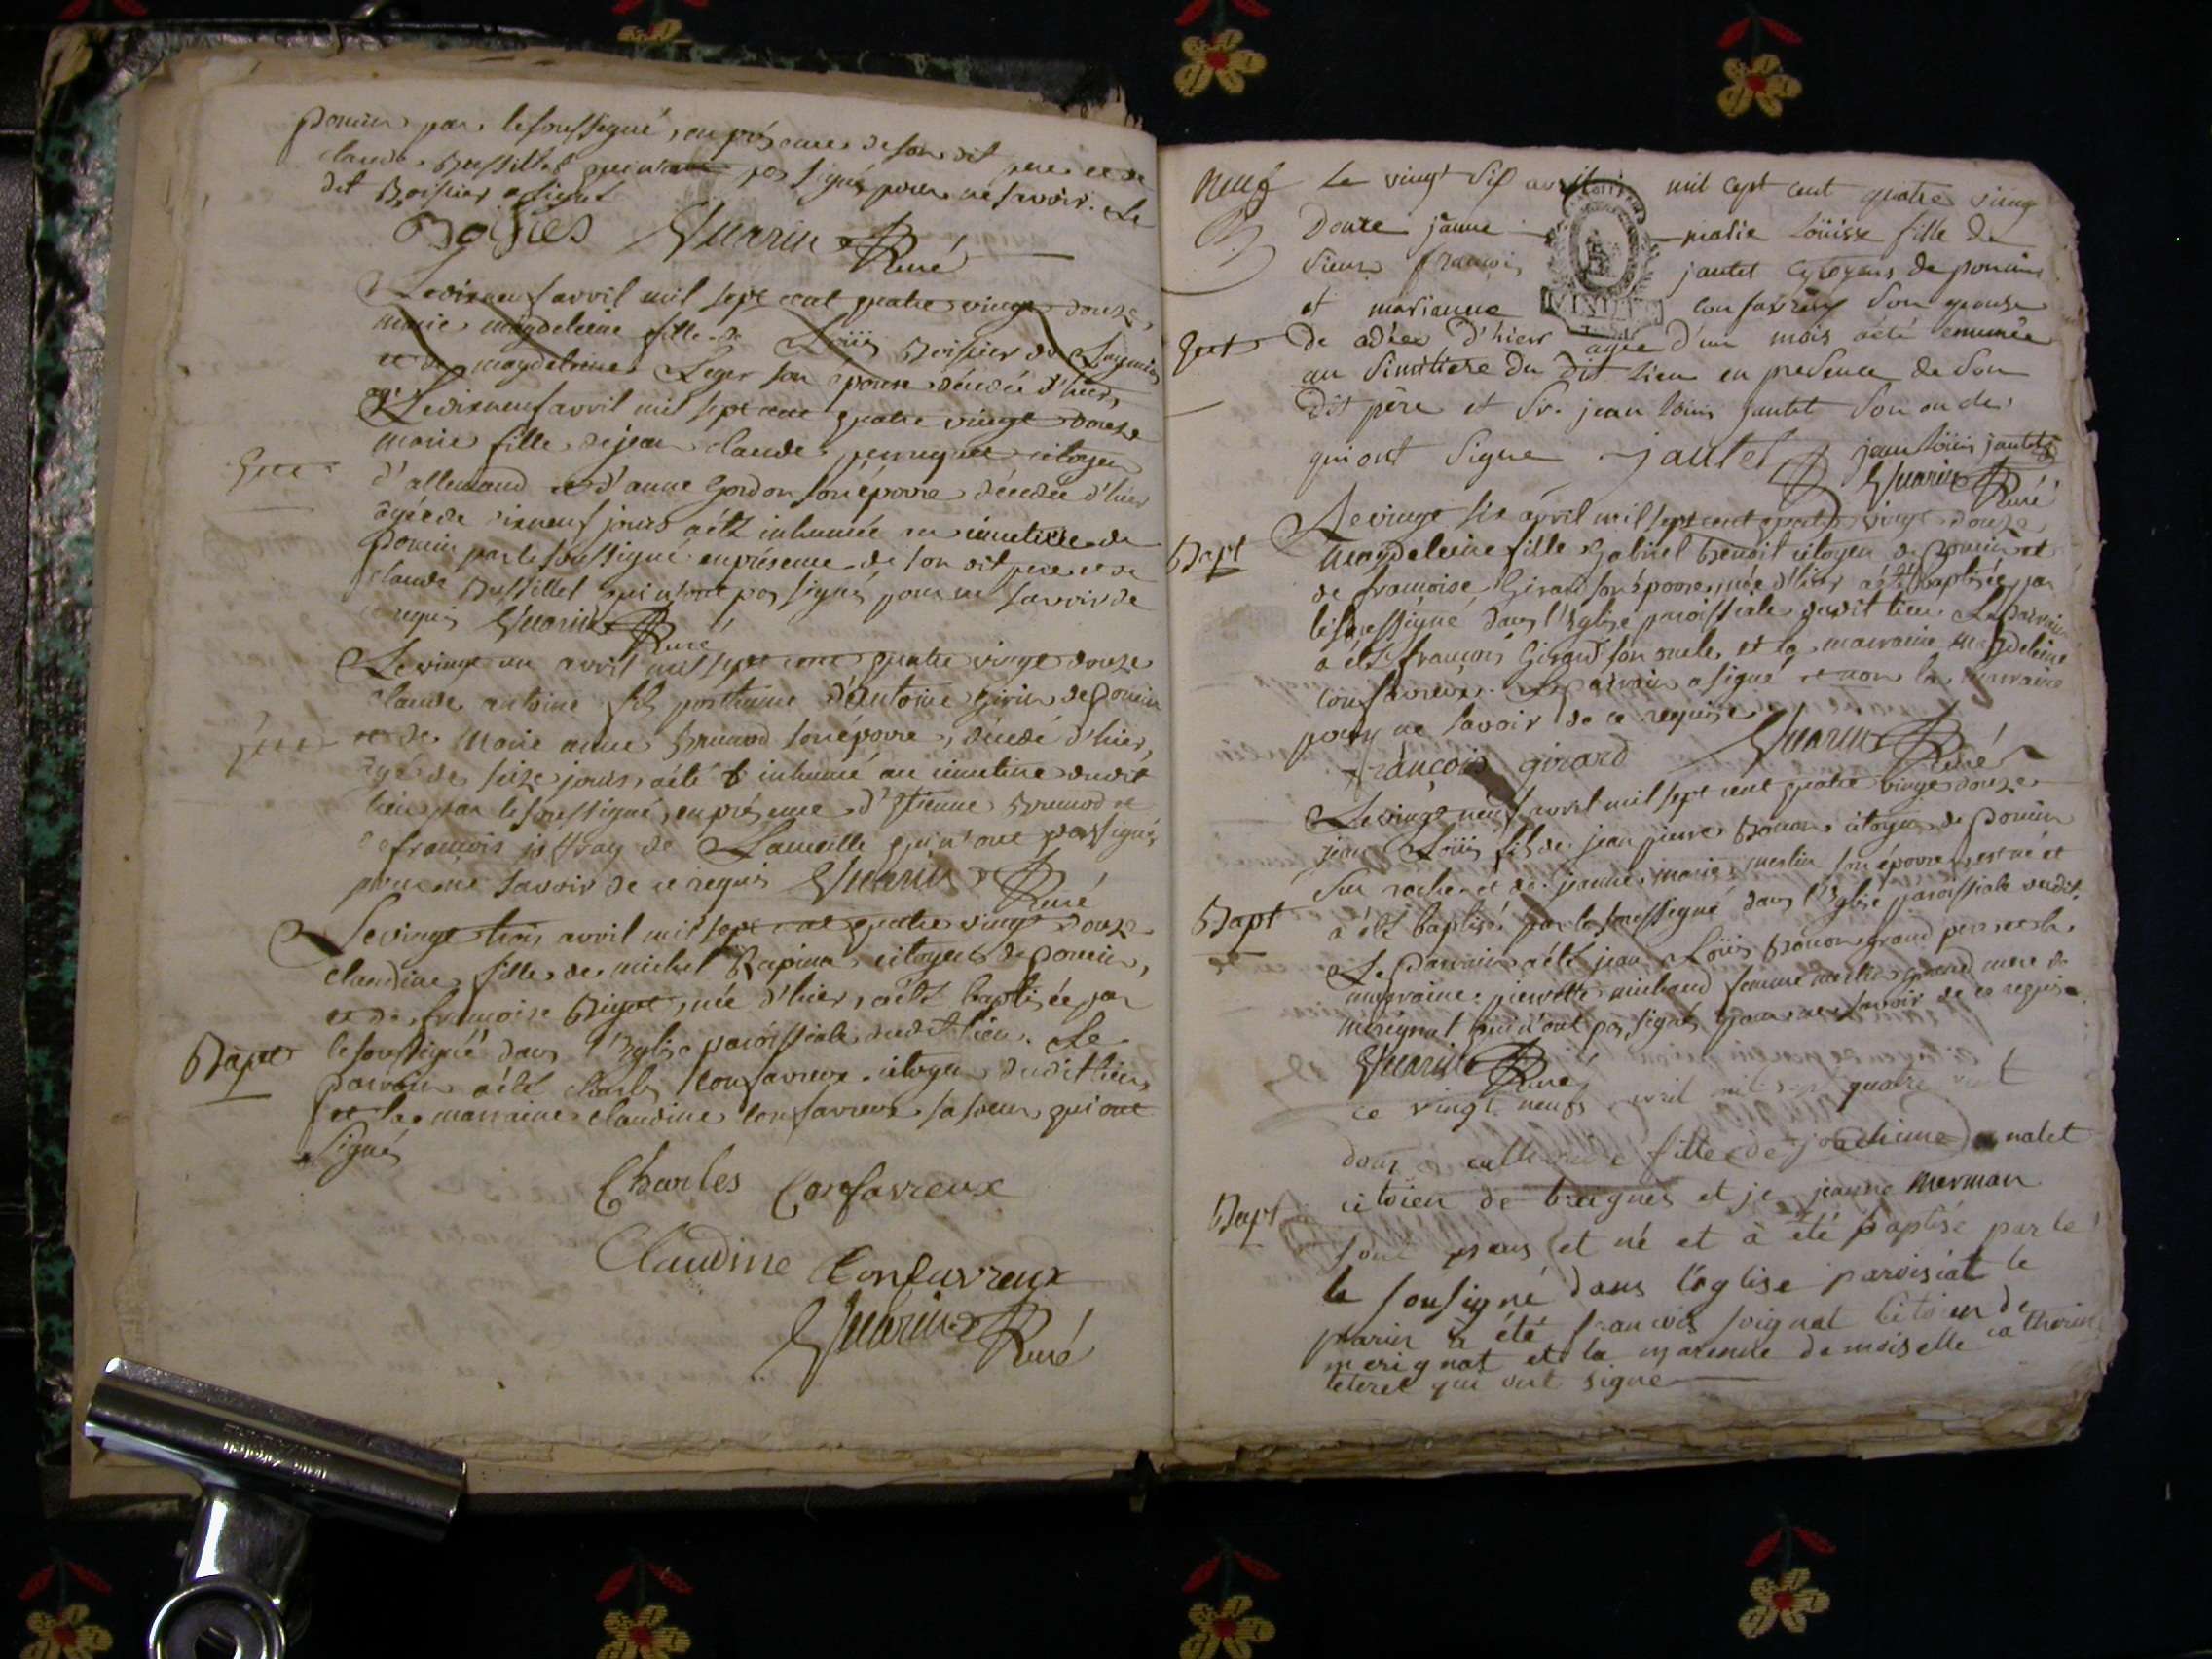 poncin par le soussigné, en présence de son dit pere et de
claude Bussillet qui n'ont pas signé pour ne savoir. Le
dit Boissier a signé
Guarin Curé
Le dixneuf avril mil sept cent quatre vingt douze,
marie magdeleine fille de Loüis Boissier de
et de magdeleine Leger son épouse décédée d'hier,
Le dixneuf avril mil sept cent quatre vingt douze
marie fille de jean claude citoyen
d'allemand et d'anne Gordon son épouse décédée d'hier
agée de dixneuf jours a été inhumée au cimetiere de
Poncin par le soussigné en présence de son dit pere et de
claude Bussillet qui n'ont pas signé pour ne savoir de
ce requis Guarin Curé
Le vingt un avril mil sept cent quatre vingt douze
claude antoine fils posthume d'antoine Girin de Poncin
et de Marie anne Brunod son épouse, décédé d'hier,
agé de seize jours, a été inhumé au cimetiere dudit
lieu par le soussigné, en présence d'Etienne Brunod et
de françois de qui n'ont pas signé
pour ne savoir de ce requis Guarin Curé
Le vingt trois avril mil sept cent quatre vingt douze
claudine fille de michel Rapina citoyen de Poncin,
et de françoise née d'hier, a été baptisée par
Bapt le soussigné dans l'Eglise paroissiale dudit lieu. Le
parrain a été charles confavreux citoyen dudit lieu
et la marraine claudine confavreux sa soeur, qui ont
signé
Charles Confavreux
Claudine Confavreux
Guarin Curé
neuf Le vingt six avril mil cept cent quatre viing
Douze janne marie Loüisse fille de
Sieur françois jantet cytoyens de poncin
et marianne confavreux Son epouse
de cédee D'hier agée d'un mois a été
au Simitiere Du Dit Lieu en presence de Son
Dit père et Sr. jean loüis jantet Son oncle
qui ont Signe jantet jean loüis jantet
Guarin Curé
Le vingt six avril mil sept cent quatre vingt douze
Bapt Magdeleine fille Gabriel Benoit citoyen de Poncin et
de françoise Girard son épouse, née d'hier a été baptisée par
le soussigné dans l'Eglise paroissiale dudit lieu. Le parrain
a été françois Girard son oncle, et la marraine Magdeleine
confavreux. Le parrain a signé et non la marraine
pour ne savoir de ce requise
françois girard Guarin Curé
Le vingt neuf avril mil sept cent quatre vingt douze
jean Loüis fils de jean pierre citoyen de Poncin
Sur roche et de jeanne marie merlin son épouse, est né et
Bapt a été baptisé par le soussigné dans l'Eglise paroissiale dudit.
Le Parrain a été jean Loüis grand pere et la
marraine pierrette michaud femme merlin grand mere de
merignat qui n'ont pas signé pour ne savoir de ce requise
Guarin Curé
ce vingt neufs avril mil sep quatre vint
douz fille de joachime
citoien de breignes et je jeanne merman
Bapt et né et à été baptisé par le
le sousigné dans l'église paroisiat le
parin à été francois soignat citoien de
merignat et la marenne demoiselle catherine
qui ont signe